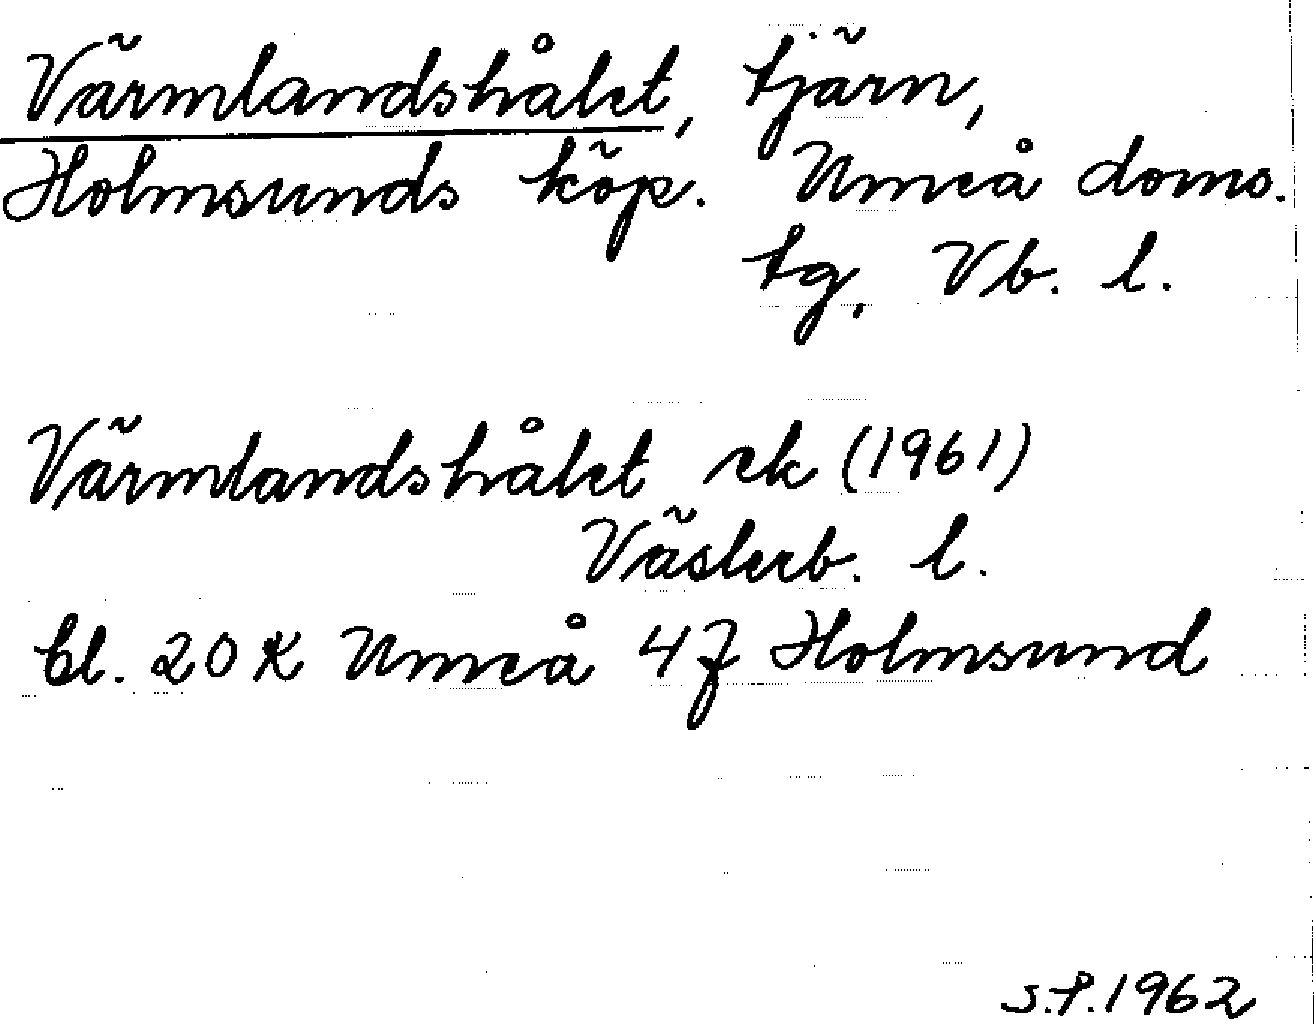 Värmlandshålet, tjärn,
Holmsunds köp. Umeå doms.
tg, Vb. l.
Värmlandshålet ek (1961)
Västerb. l.
bl. 20 K Umeå 4 f Holmsund
S.P. 1962